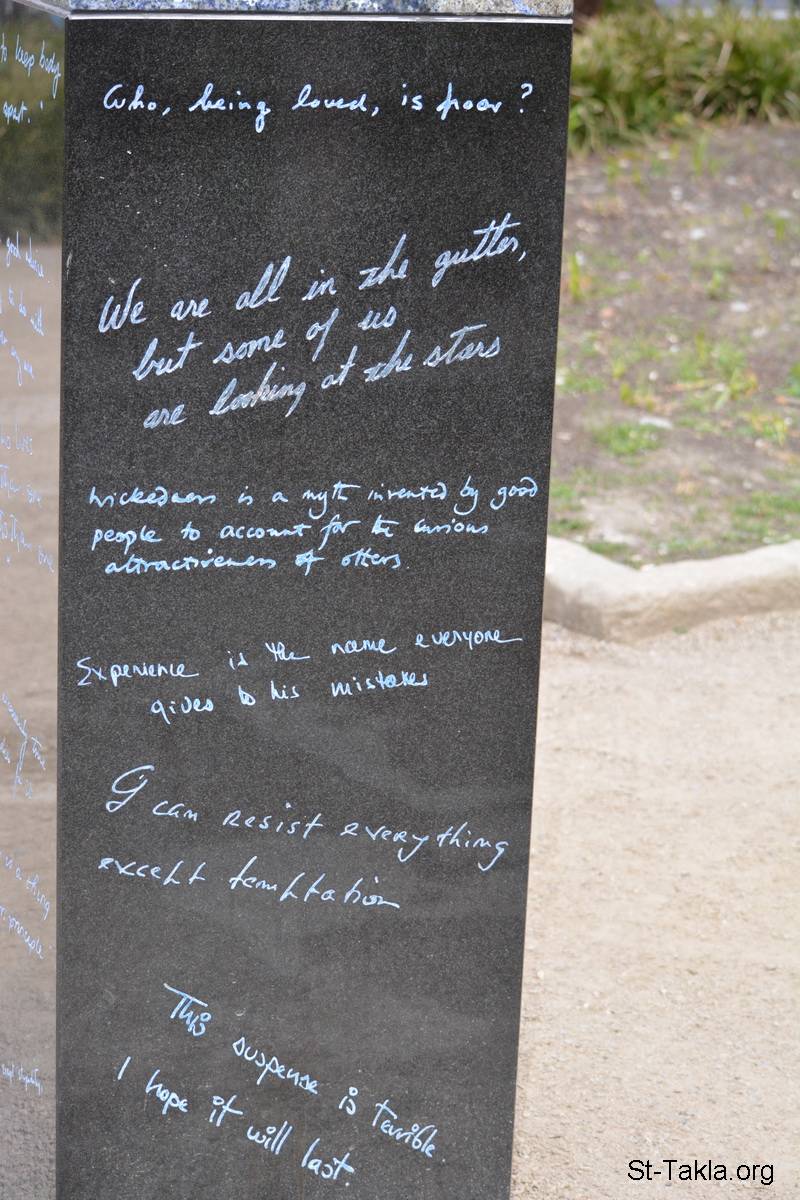 to keep body
apart.'
Who, being loved, is poor?
We are all in the gutter,
but some of us
are looking at the stars
Wickedness is a myth invented by good
people to account for the curious
attractiveness of others.
Experience is the name everyone
gives to his mistakes
I can resist everything
except temptation
This suspense is terrible.
I hope it will last.
St-Takla.org